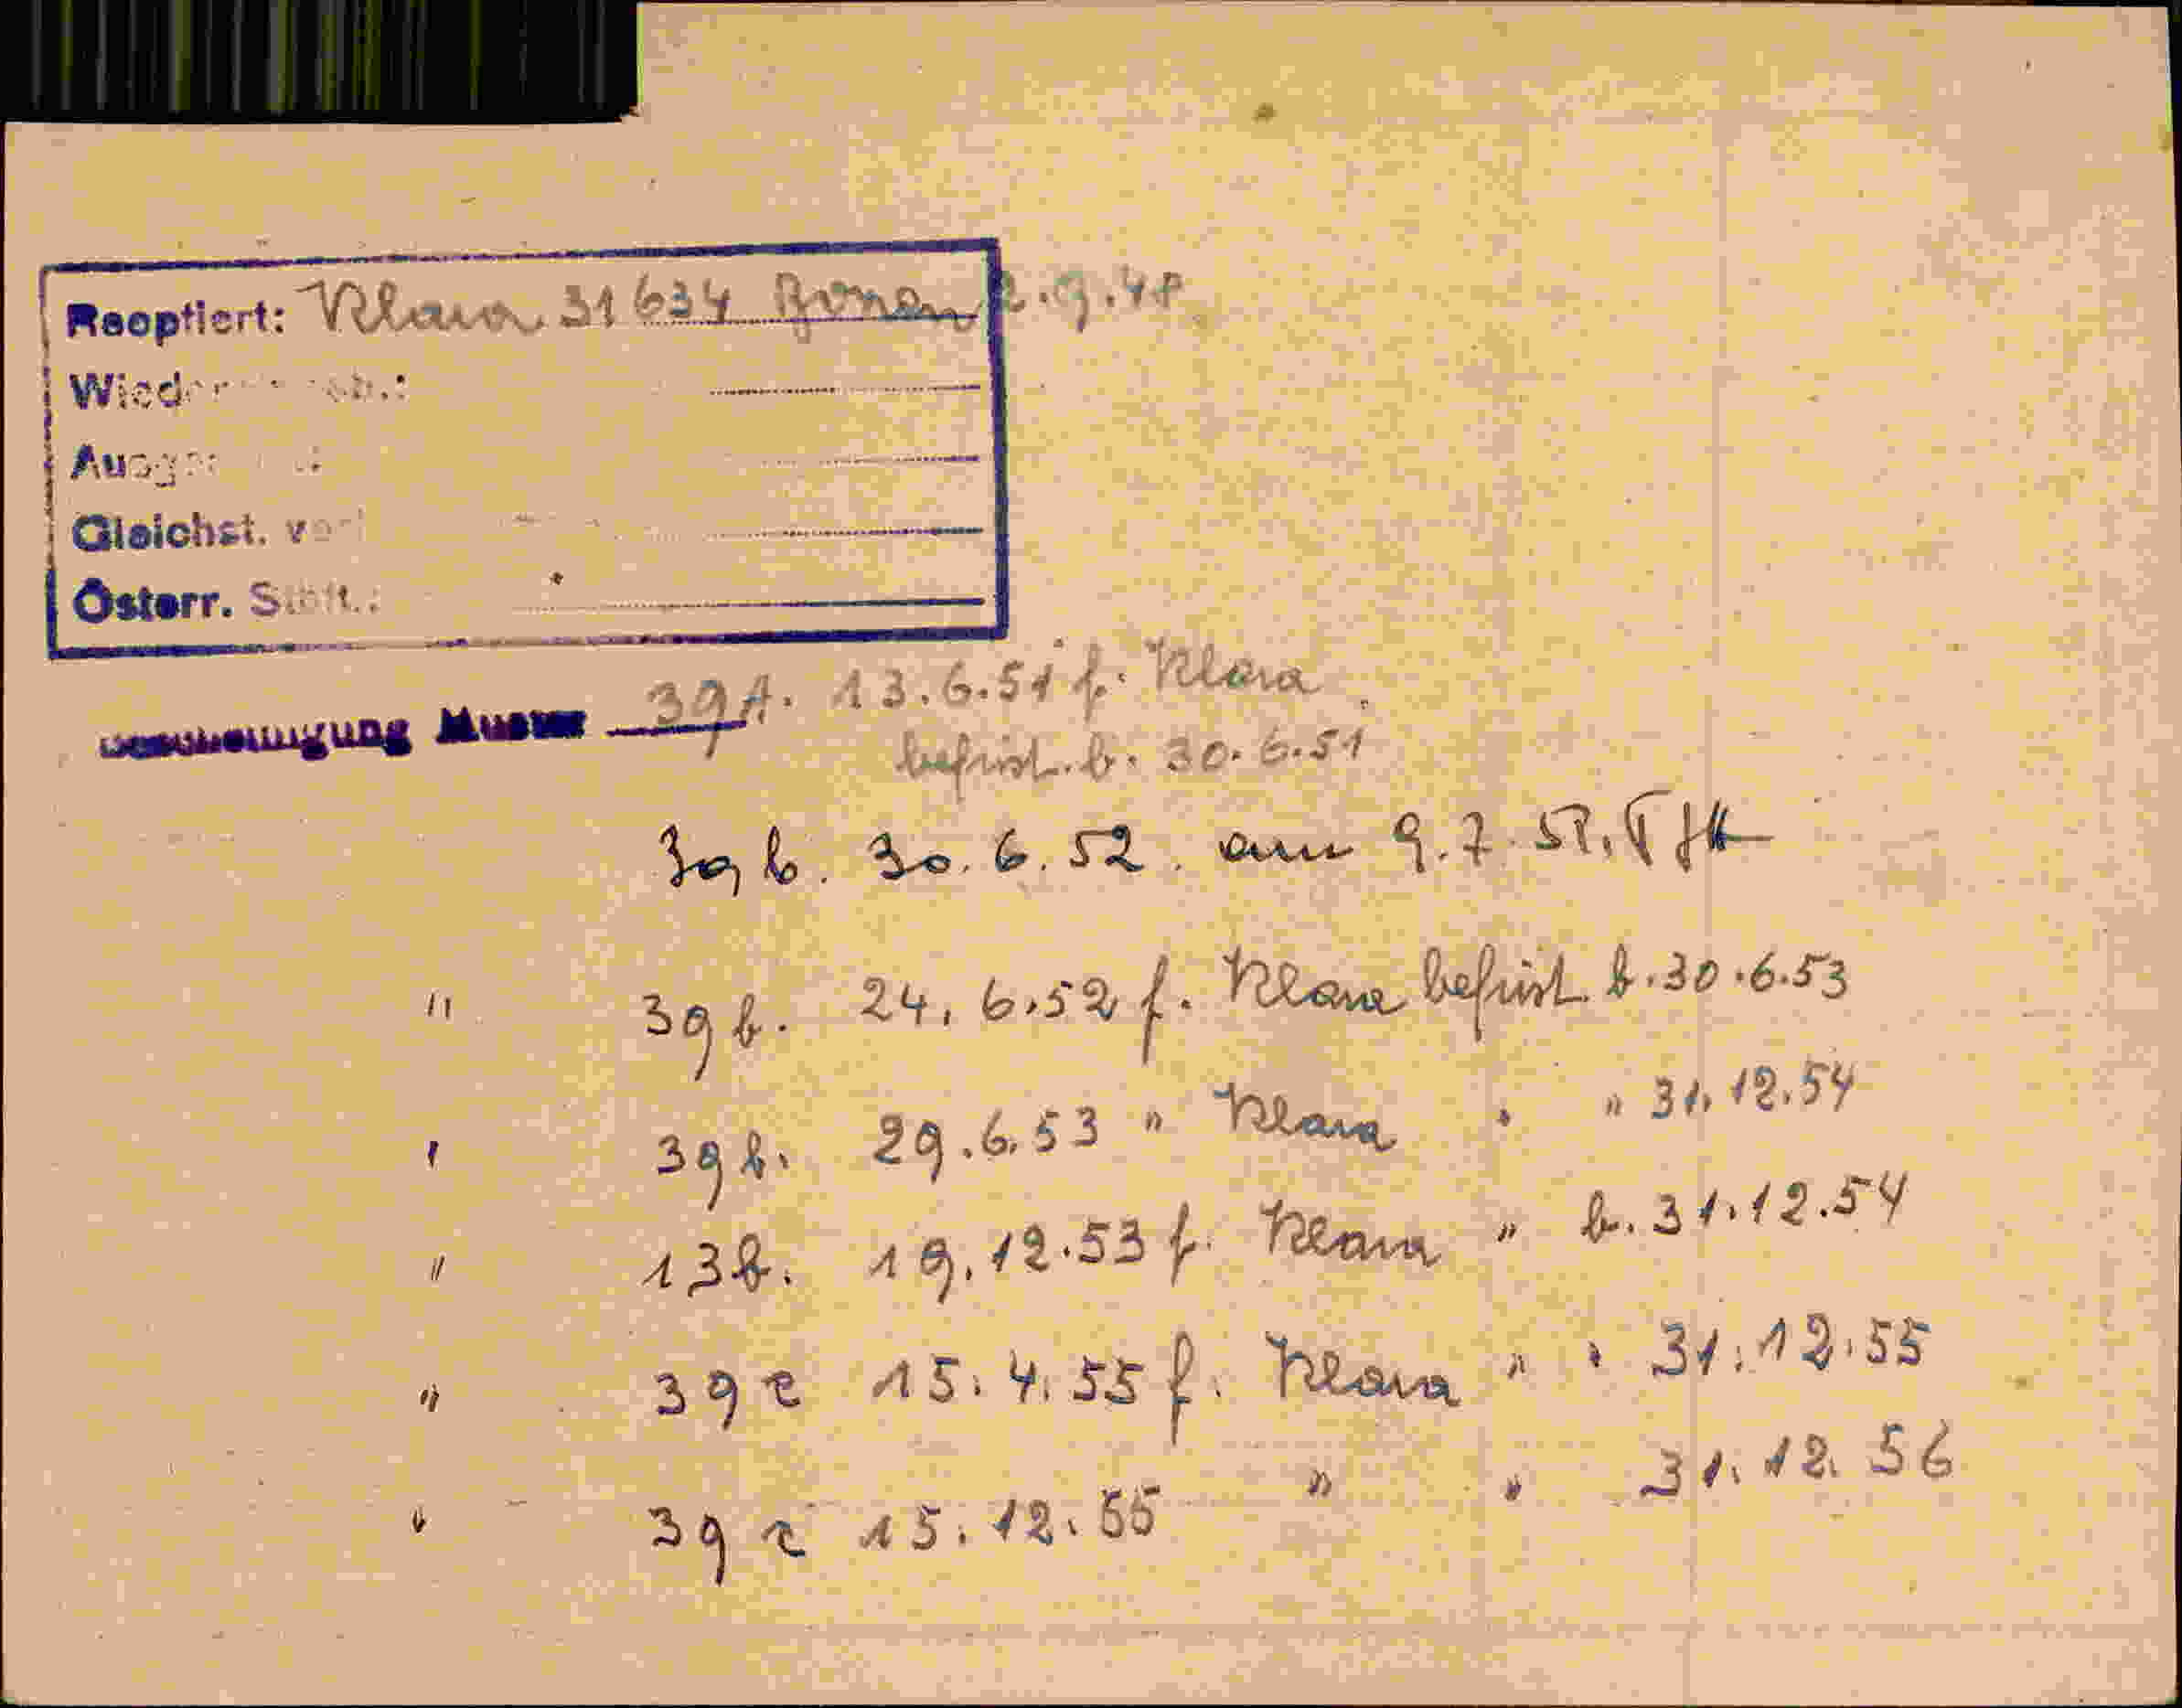 Reoptiert: Klara 31634 Bozen 2.9.48
Gleichst.
Österr.
Bescheinigung Muster 39 A. 13.6.51 f. Klara
befrist. b. 30.6.51
39 b. 30.6.52. am 9.7.51.
" 39 b. 24.6.52 f. Klara befrist. b. 30.6.53
" 39 b. 29.6.53 " Klara " " 31.12.54
" 13 b. 19.12.53 f. Klara " b. 31.12.54
" 39 c 15.4.55 f. Klara " " 31.12.55
" 39 c 15.12.55 " " 31.12.56